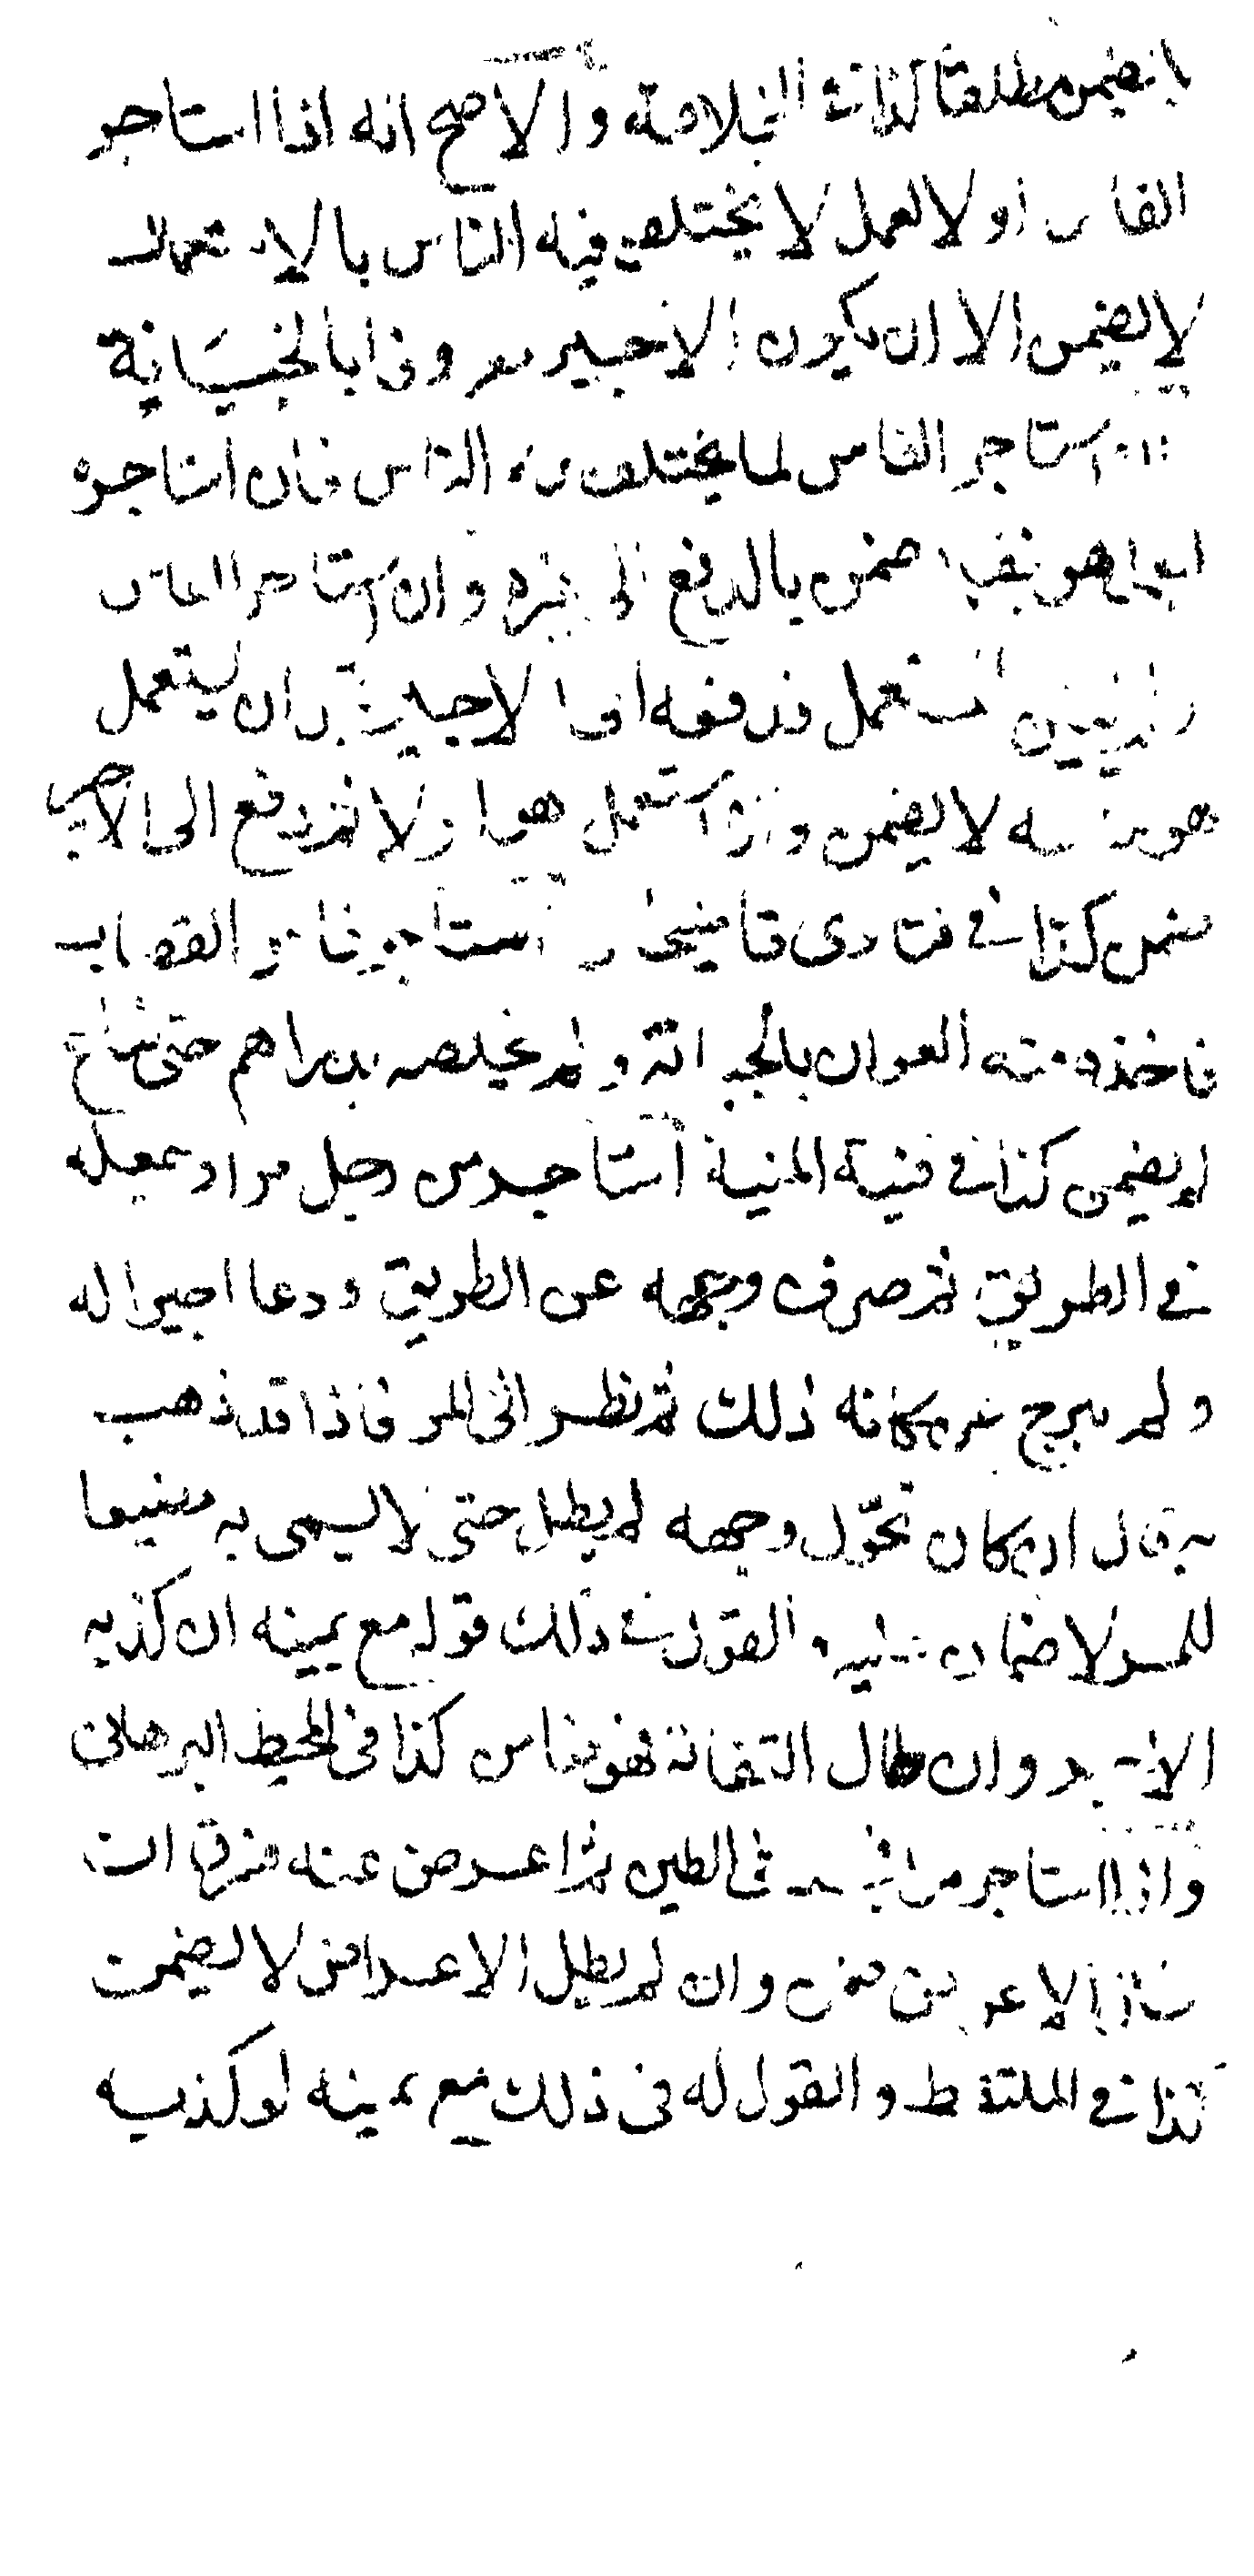 يضمن مطلقا كذا في الخلاصة والاصح انه اذا استاجر
الفاس اولا لعمل لا يختلف فيه الناس بالاستعمال
لا يضمن الا ان يكون الاجير معروفا بالخيانة
استاجر الفاس لما يختلف فيه الناس فان استاجره
ليعمل هو بنفسه ضمن بالدفع الى غيره وان استاجر الفاس
يستعمل فدفعه الى الاجير قبل ان يستعمل
هو بنفسه لا يضمن ولو استعمل هو اولا ثم دفع الى الاجير
ضمن كذا في فتاوى قاضيخان استاجر فاسا القصاب
فاخذه منه العوان بالجباية ولم يخلصه بدراهم حتى ضاع
لم يضمن كذا في قنية المنية استاجر من رجل مرا وجعله
في الطريق ثم صرف وجهه عن الطريق ودعا اجيرا له
ولم يبرح عن مكانه ذلك ثم نظر الى المر فاذا قد ذهب
به قال ان كان تحول وجهه لم يطل حتى لا يسمى به مضيعا
للمر لا ضمان عليه والقول في ذلك قوله مع يمينه ان كذبه
الاجر وان طال التفاته فهو ضامن كذا في المحيط البرهاني
واذا استاجر مرا في الطين ثم اعرض عنه فسرق ان
الاعراض ضمن وان لم يطل الاعراض لا يضمن
كذا في الملتقط والقول له في ذلك مع يمينه لو كذبه